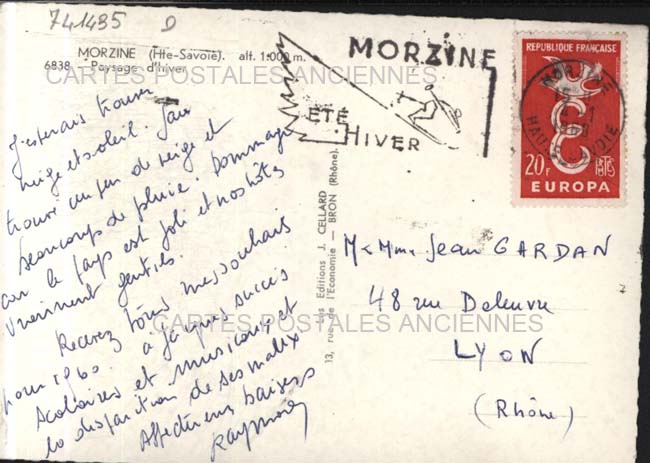 741485 D
MORZINE (Hte-Savoie). alt. 1.000 m.
6838 - Paysage d'hiver
CARTES POSTALES ANCIENNES
J'esperais trouver
neige et soleil. J'ai
trouvé un peu de neige et
beaucoup de pluie. Dommage
car le pays est joli et nos hôtes
vraiment gentils.
Recevez tous mes souhaits
pour 1960. a Jacques succès
scolaires et musicaux et
la disparition de ses maux
Affectueux baisers
Raymonde
MORZINE
ÉTÉ
HIVER
Les Editions J. CELLARD
13, rue de l'Economie - BRON (Rhône).
REPUBLIQUE FRANÇAISE
20F
EUROPA
MORZINE
HAUTE-SAVOIE
M & Mme Jean GARDAN
48 rue Deleuvre
CARTES POSTALES ANCIENNES
LYON
(Rhône)